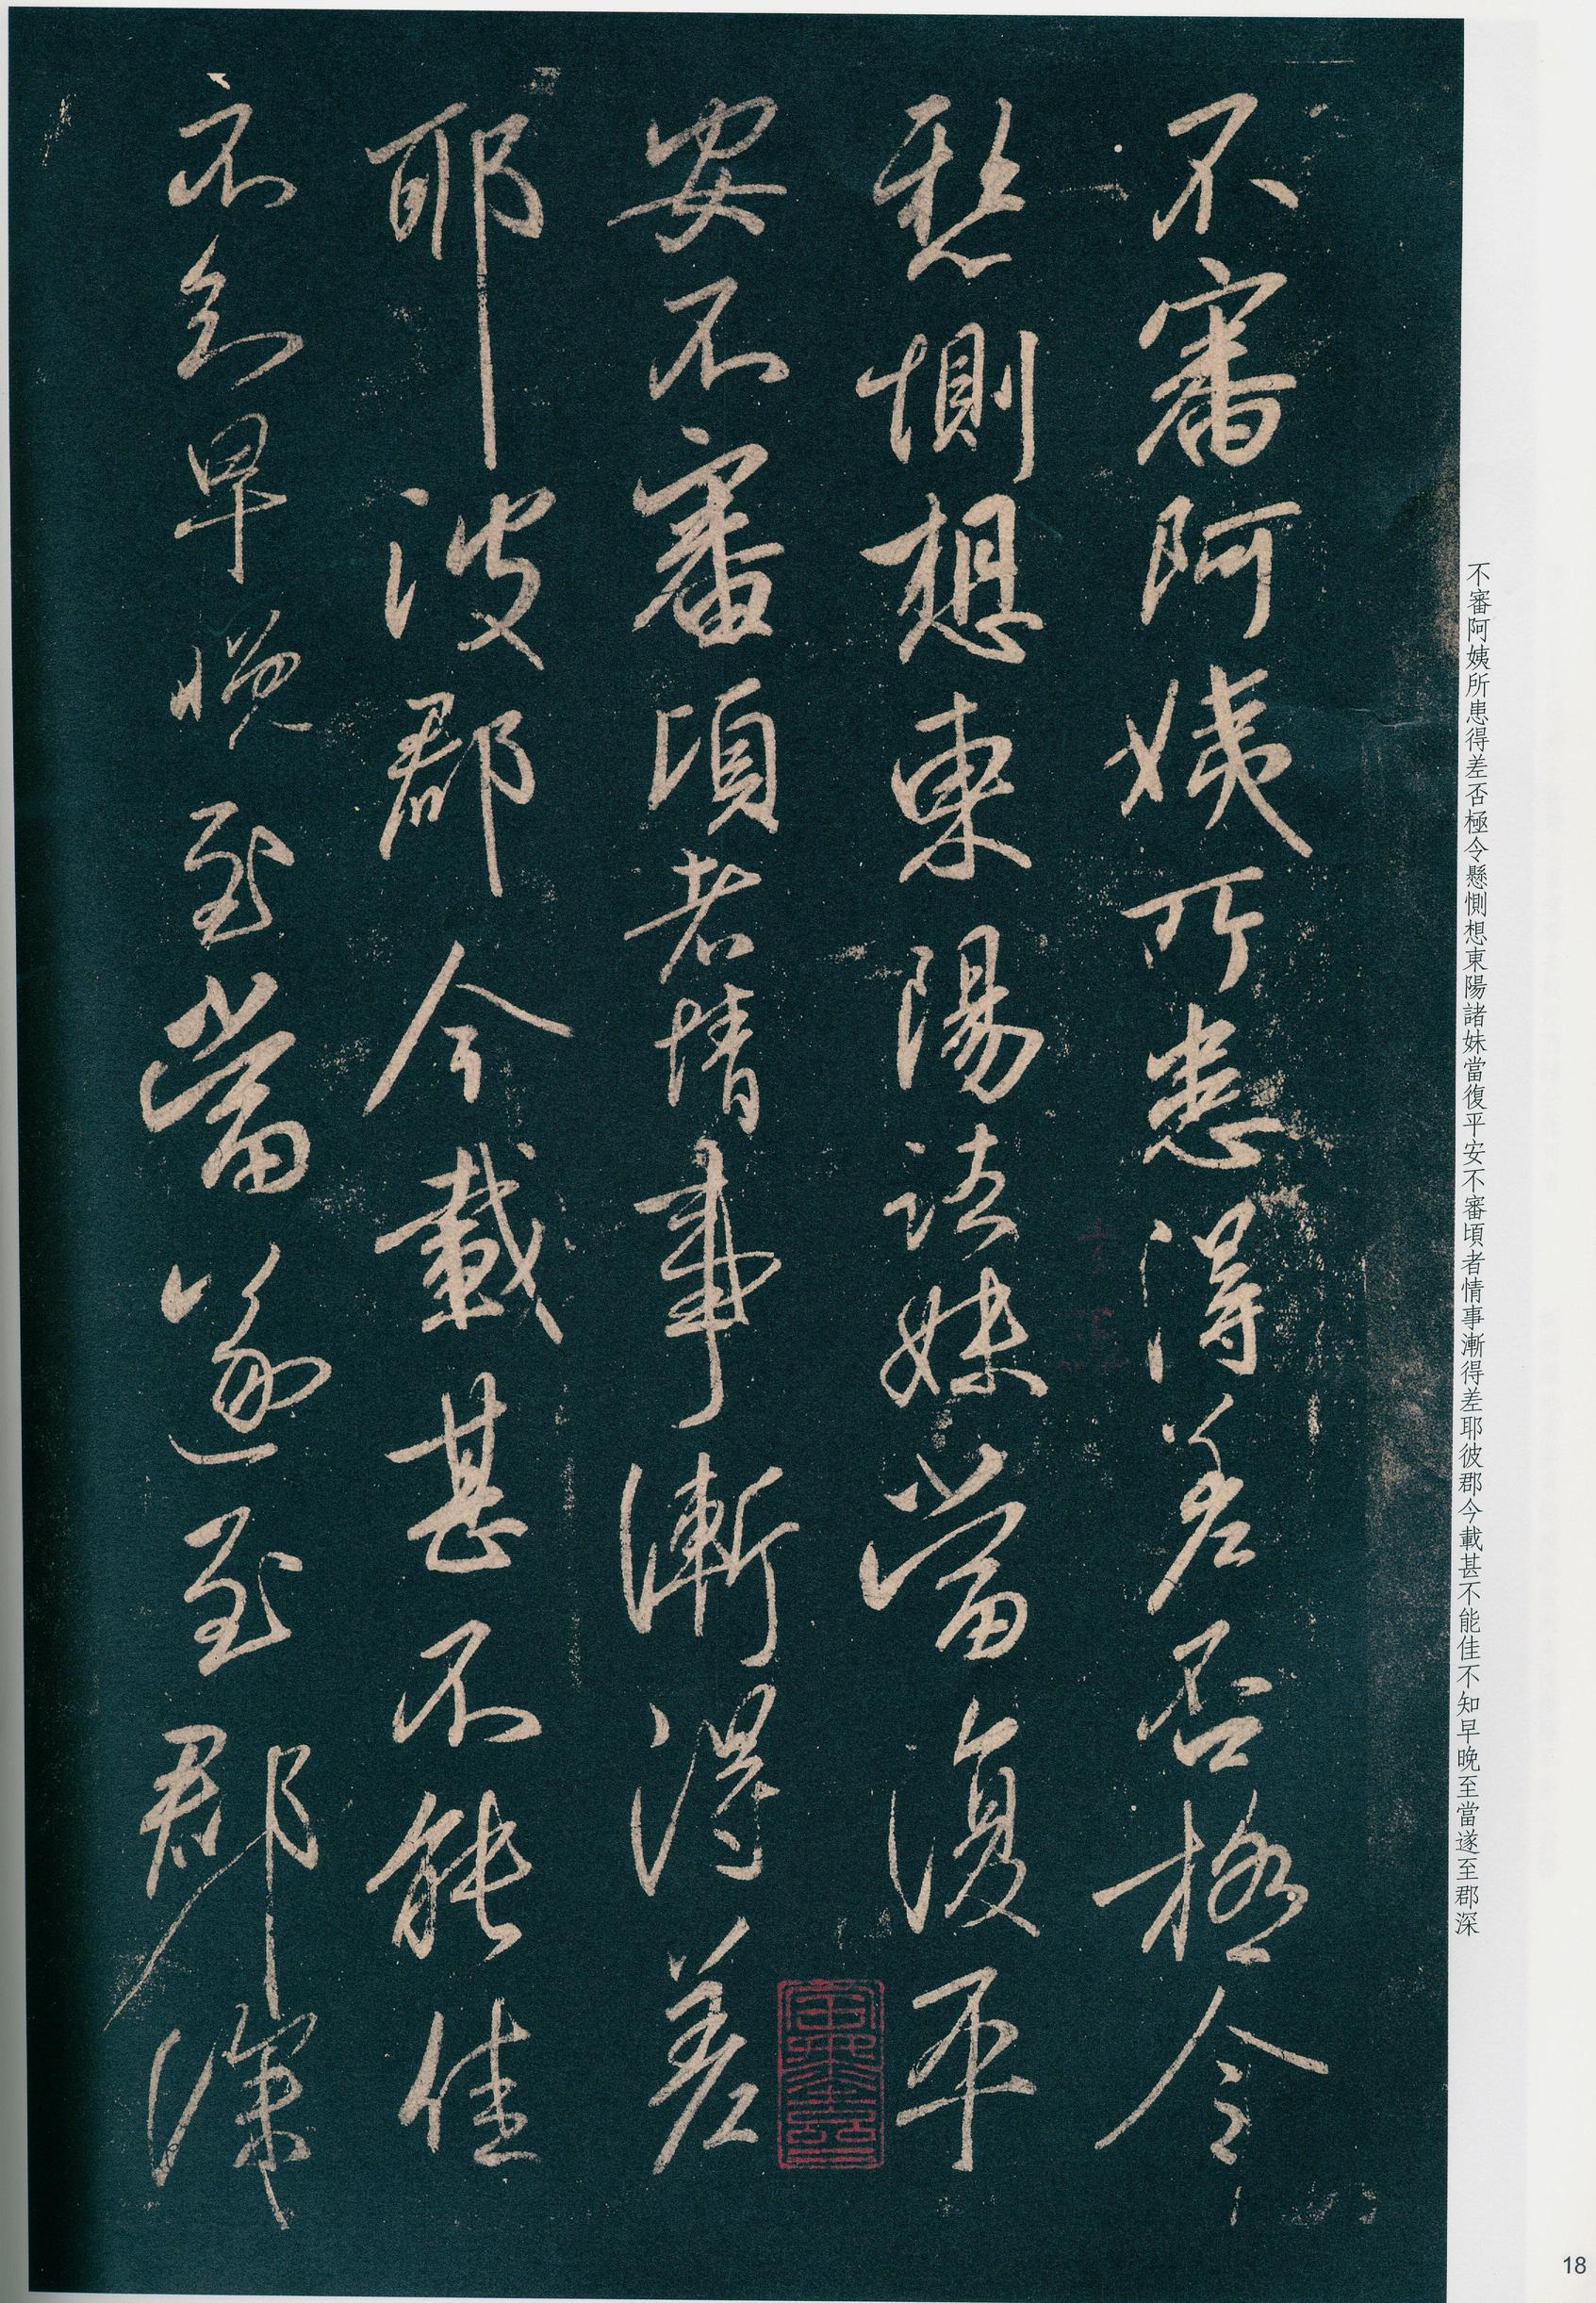 不審阿姨所患得差否極令
懸惻想東陽諸妹當復平
安不審頃者情事漸得差
耶彼郡今載甚不能佳
不知早晚至當遂至郡深
不審阿姨所患得差否極令懸惻想東陽諸妹當復平安不審頃者情事漸得差耶彼郡今載甚不能佳不知早晚至當遂至郡深
18